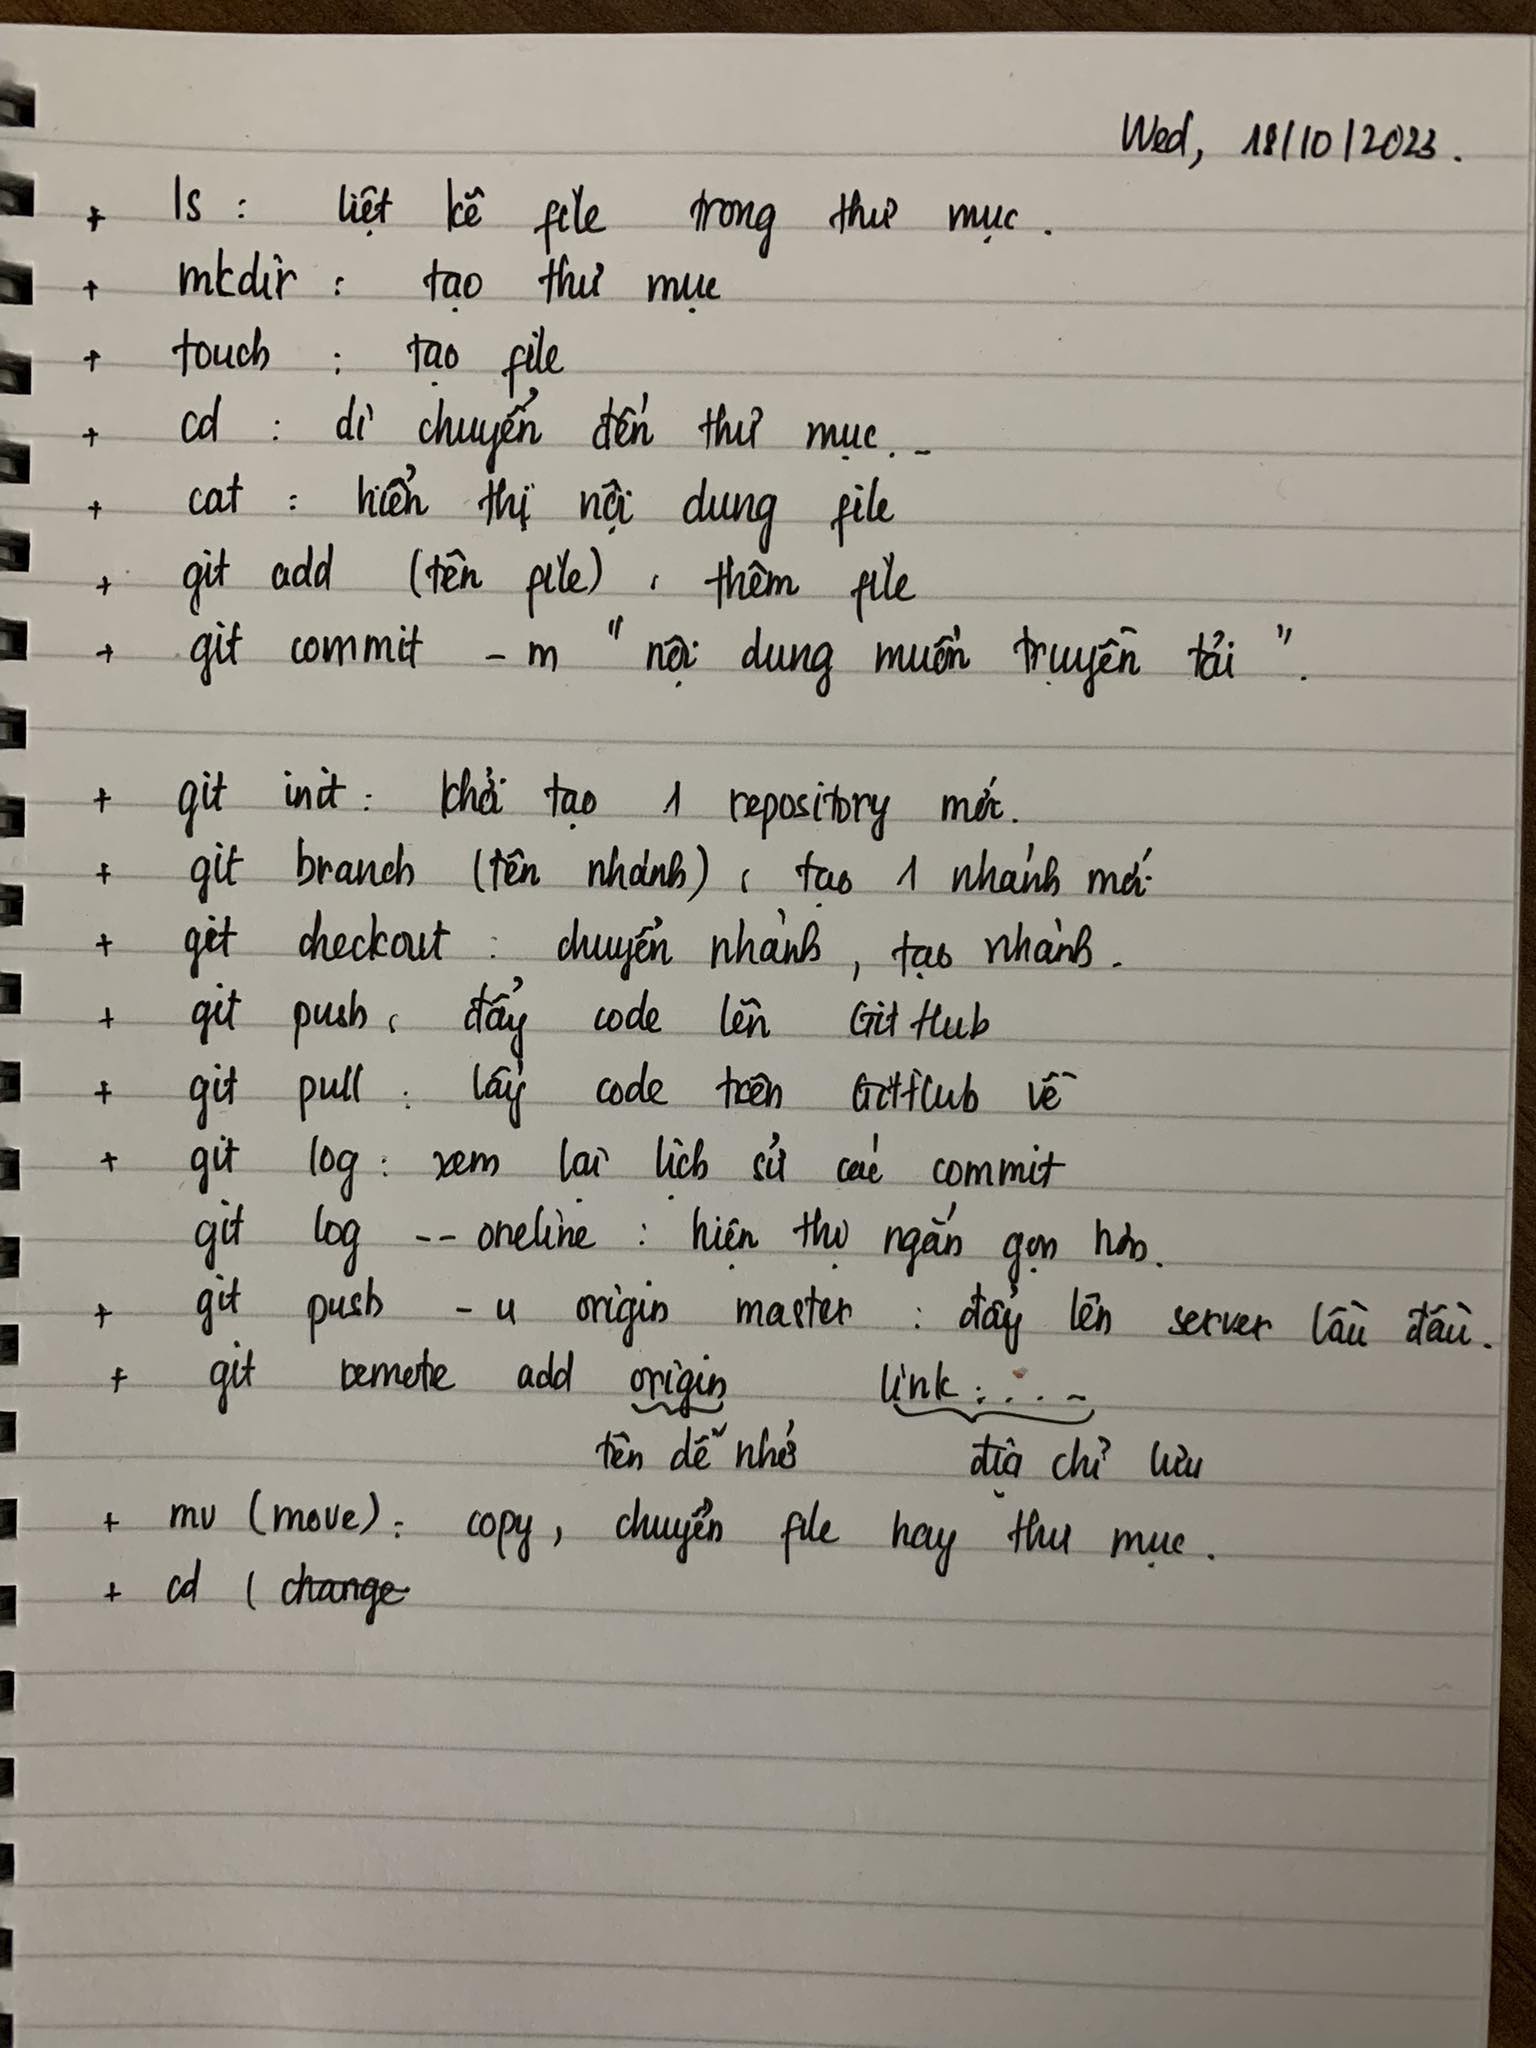 Wed, 18/10/2023.
+ ls : liệt kê file trong thư mục.
+ mkdir : tạo thư mục
+ touch : tạo file
+ cd : di chuyển đến thư mục..
+ cat : hiển thị nội dung file
+ git add (tên file) : thêm file
+ git commit -m "nội dung muốn truyền tải".
+ git init : khởi tạo 1 repository mới.
+ git branch (tên nhánh) : tạo 1 nhánh mới
+ git checkout : chuyển nhánh, tạo nhánh.
+ git push : đẩy code lên GitHub
+ git pull : lấy code trên GitHub về
+ git log : xem lại lịch sử các commit
git log --oneline : hiện thị ngắn gọn hơn.
+ git push -u origin master : đẩy lên server lần đầu.
+ git remote add origin link : ...
tên dễ nhớ địa chỉ lưu
+ mv (move) : copy, chuyển file hay thư mục.
+ cd ( change